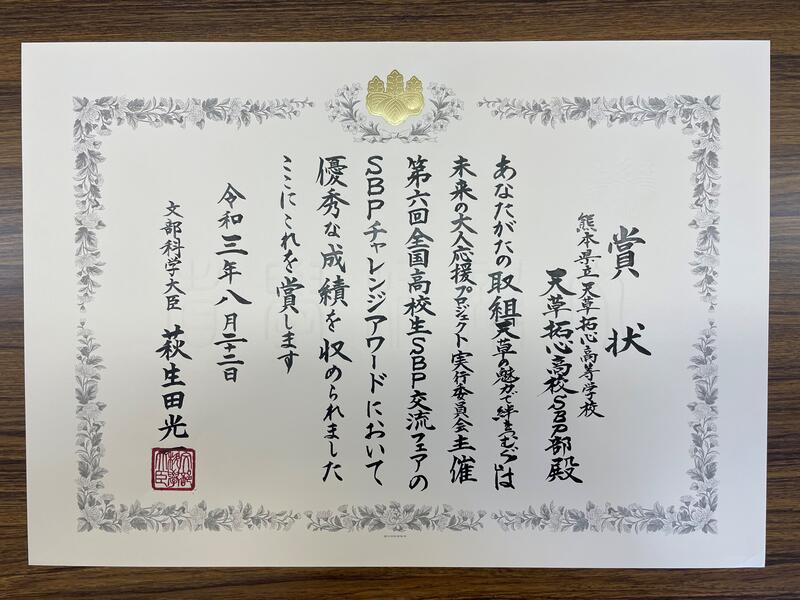 賞状
熊本県立天草拓心高等学校
天草拓心高校SBP部殿
あなたがたの取組「天草の魅力で絆をむすぶ」は
未来の大人応援プロジェクト実行委員会主催
第六回全国高校生SBP交流フェアの
SBPチャレンジアワードにおいて
優秀な成績を収められました
ここにこれを賞します
令和三年八月二十二日
文部科学大臣 萩生田光一